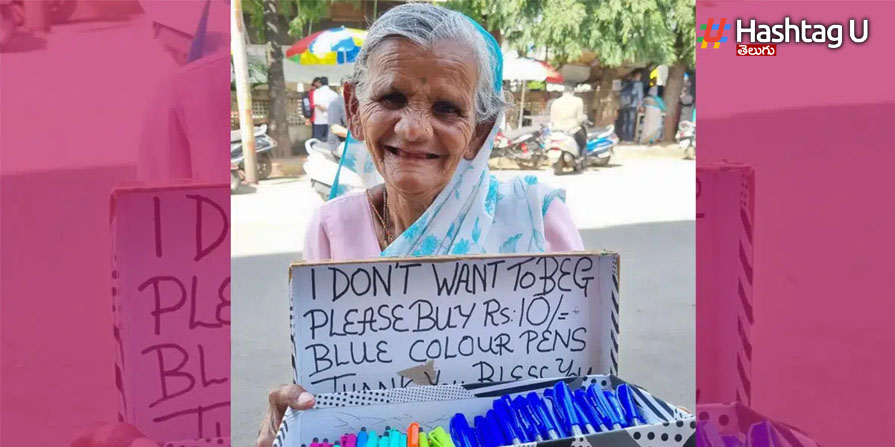 # Hashtag U
తెలుగు
I DON'T WANT TO BEG
PLEASE BUY Rs: 10/=
BLUE COLOUR PENS
THANK YOU BLESS YOU
I D
PLE
BL
T